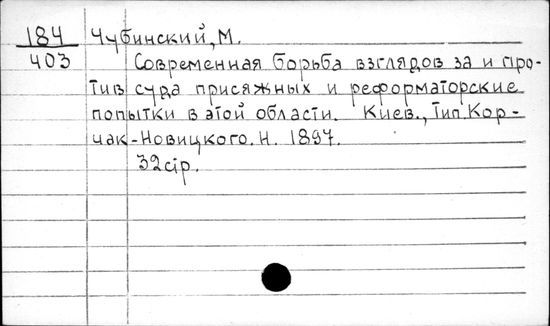 184 Чубинский, М.
403 Современная борьба взглядов за и про-
тив суда присяжных и реформаторские
попытки в этой области. Киев., Тип. Кор-
чак-Новицкого. Н. 1897.
32 стр.